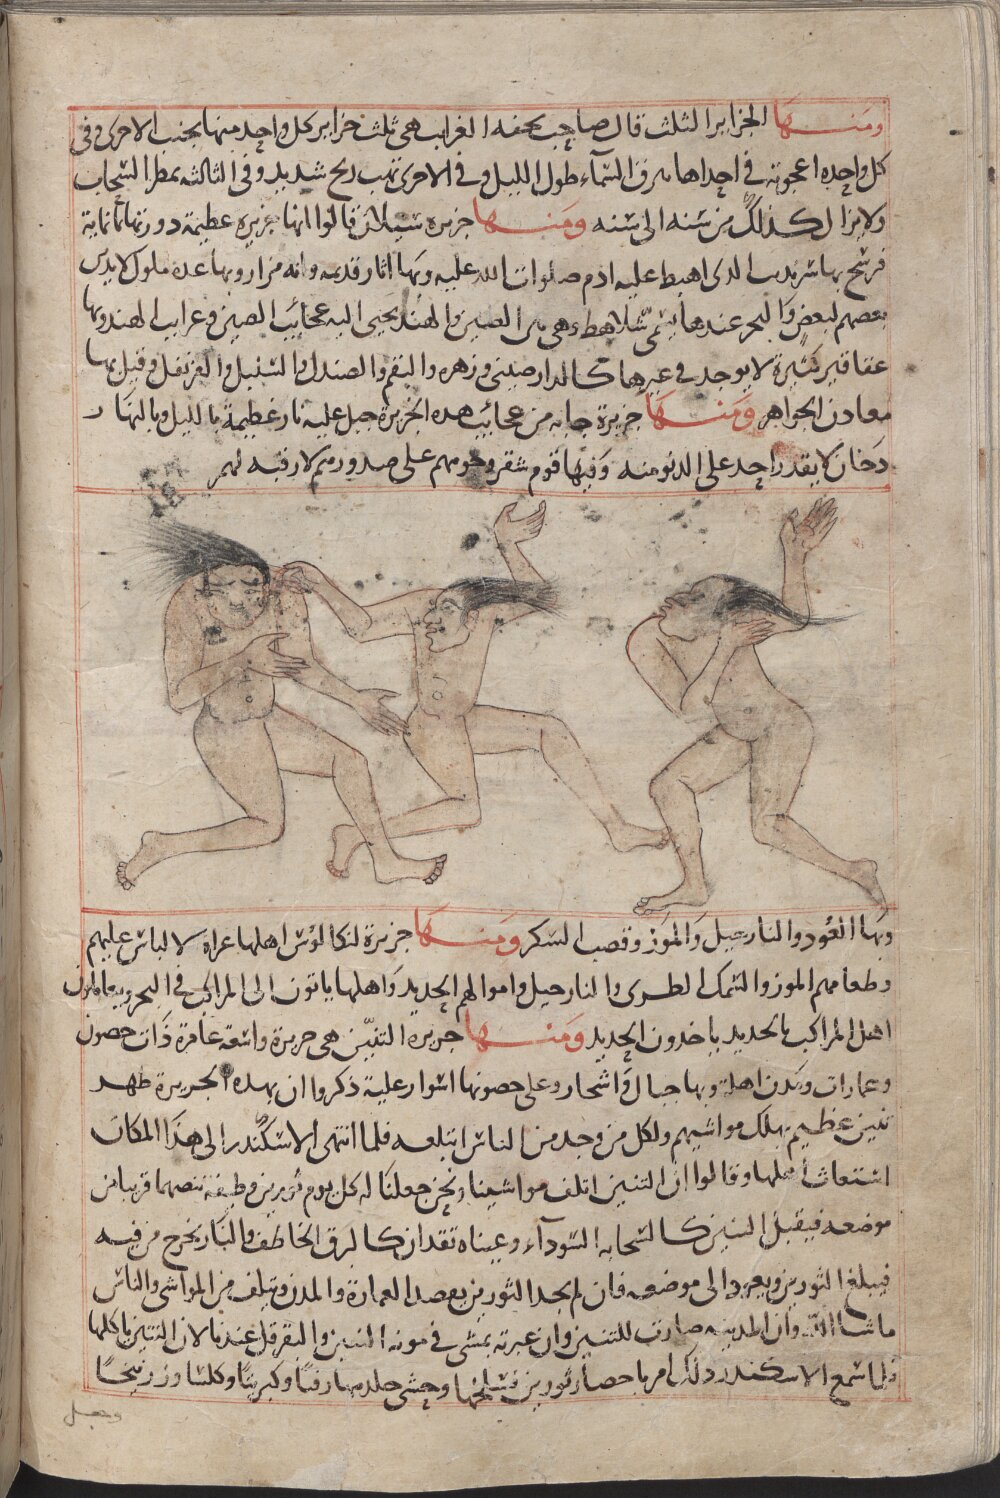 ومنها الجزاير الثلث قال صاحب تحفه الغراب هى ثلث جزاير كل واحد منها بجنب الاخرى فى
كل واحده اعجوبة في احداها يبرق السمآء طول الليل وفى الاخرى تهب ريح شديد وفى الثالثه يمطر السحاب
ولا يزال كذلك من سنه الى سنه ومنها جزيره سيلان قالوا انها جزيره عظيمة دورتها ثمانماية
فرسخ بها سرنديب الذى اهبط عليه ادم صلوات الله عليه وبها اثار قدمه وانه مزار وبها عدة ملوك لا يدين
بعضهم لبعض والبحر عندها يسمى شلاهط وهى بين الصين والهند يجيى اليه عجائب الصين وغرايب الهند وبها
عقاقير كثيرة لا يوجد فى غيرها كالدارصينى وزهره والبقم والصندل والسنبل والقرنفل وقيل بها
معادن الجواهر ومنها جزيرة جابه من عجائب هذه الجزيرة جبل عليه نار عظيمة بالليل وبالنهار
دخان لا يقدر احد على الدنو منه وفيها قوم شقر وجوههم على صدورهم لا رقبه لهم
وبها العود والنارجيل والموز وقصب السكر ومنها جزيرة لنكالوس اهلها عراة لا لباس عليهم
وطعامهم الموز والسمك الطرى والنارجيل واموالهم الحديد واهلها ياتون الى المراكب فى البحر ويعاملون
اهل المراكب بالحديد ياخذون الحديد ومنها جزيره التنين هى جزيرة واسعة عامرة ذات حصون
وعمارات ومدن اهلة وبها جبال واشجار وعلى حصونها اسوار علية ذكروا ان بهذه الجزيرة ظهر
تنين عظيم يهلك مواشيهم ولكل من وجد من الناس ابتلعه فلما انتهى الاسكندر الى هذا المكان
استغاث اهلها وقالوا ان التنين اتلف مواشينا ونحن جعلنا له كل يوم ثورين وظيفة ننصبهما قريبا من
موضعه فيقبل التنين كالسحابه السودآء وعيناه تقدان كالبرق الخاطف والنار يخرج من فيه
فيبلغ الثورين ويعود الى موضعه فان لم يجد الثورين يعصد العمارة والمدن ويتلف من المواشى والناس
ما شا الله وان المدينه صارت للتنين وان عبرته يمشى فى مونه التنين والبقر قل عندنا لان التنين ياكلها
فلما سمع الاسكندر ذلك امر باحضار ثورين فسلخها وحشى جلدهما زفتا وكبريتا وكلسا وزرنيخا
وجعل